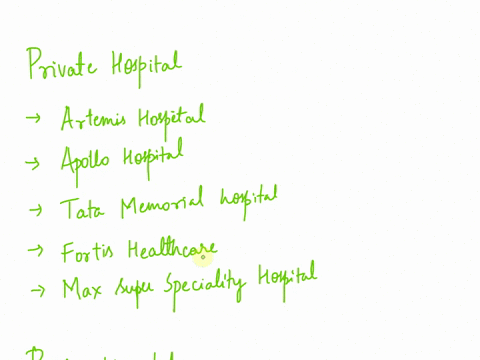 Private Hospital
→ Artemis Hospital
→ Apollo Hospital
→ Tata Memorial hospital
→ Fortis Healthcare
→ Max Super Speciality Hospital